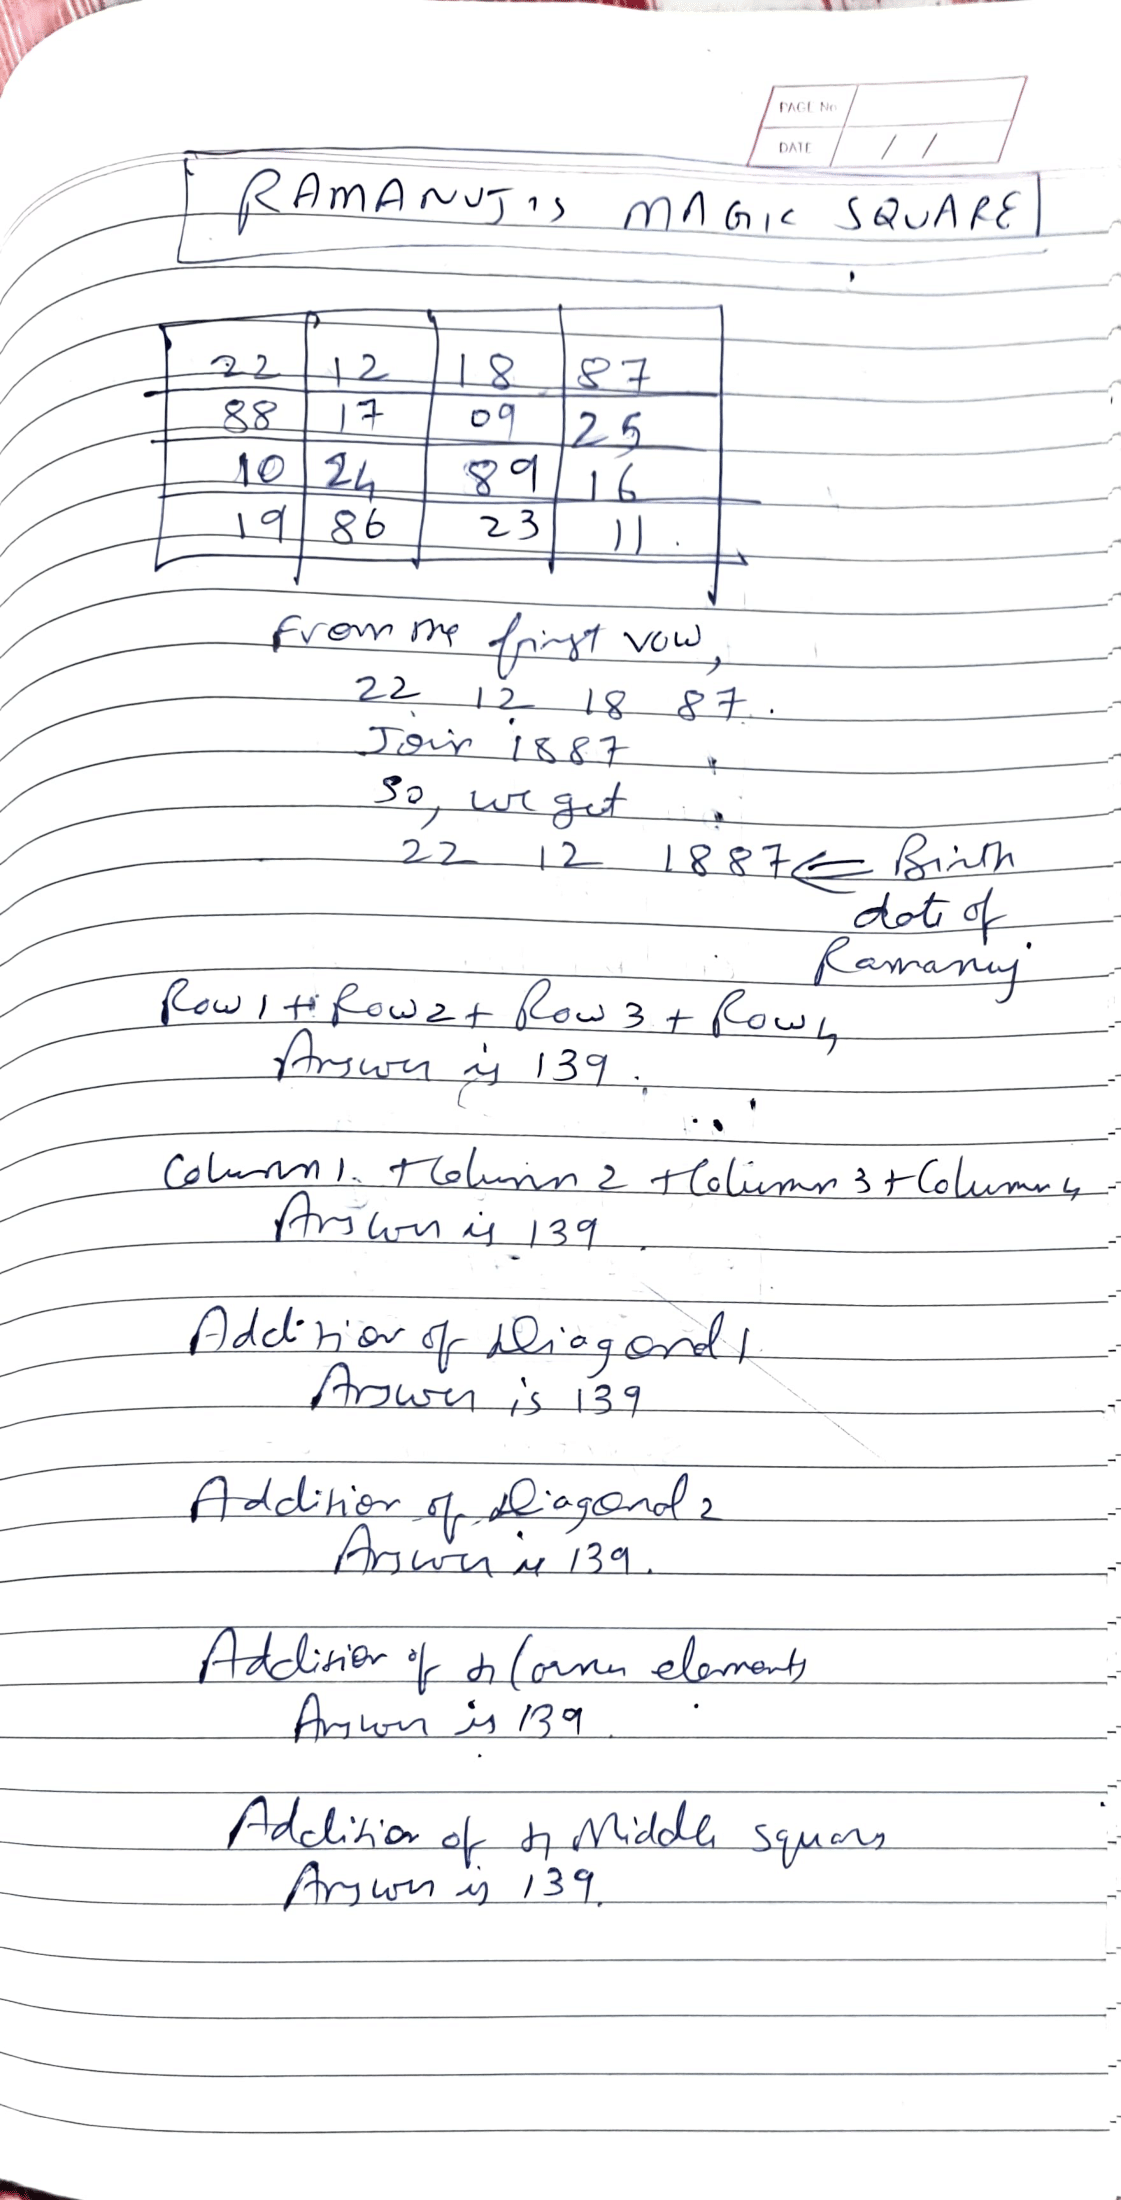 PAGE No
DATE / /
RAMANUJ'S MAGIC SQUARE
22 12 18 87
88 17 09 25
10 24 89 16
19 86 23 11.
From the first row,
22 12 18 87.
Join 1887
So, we get
22 12 1887 ⇐ Birth
date of
Ramanuj
Row 1 + Row 2 + Row 3 + Row 4
Answer is 139.
Column 1. + Column 2 + Column 3 + Column 4
Answer is 139.
Addition of Diagonal 1
Answer is 139
Addition of Diagonal 2
Answer is 139.
Addition of 4 Corner elements
Answer is 139.
Addition of 4 Middle squares
Answer is 139.